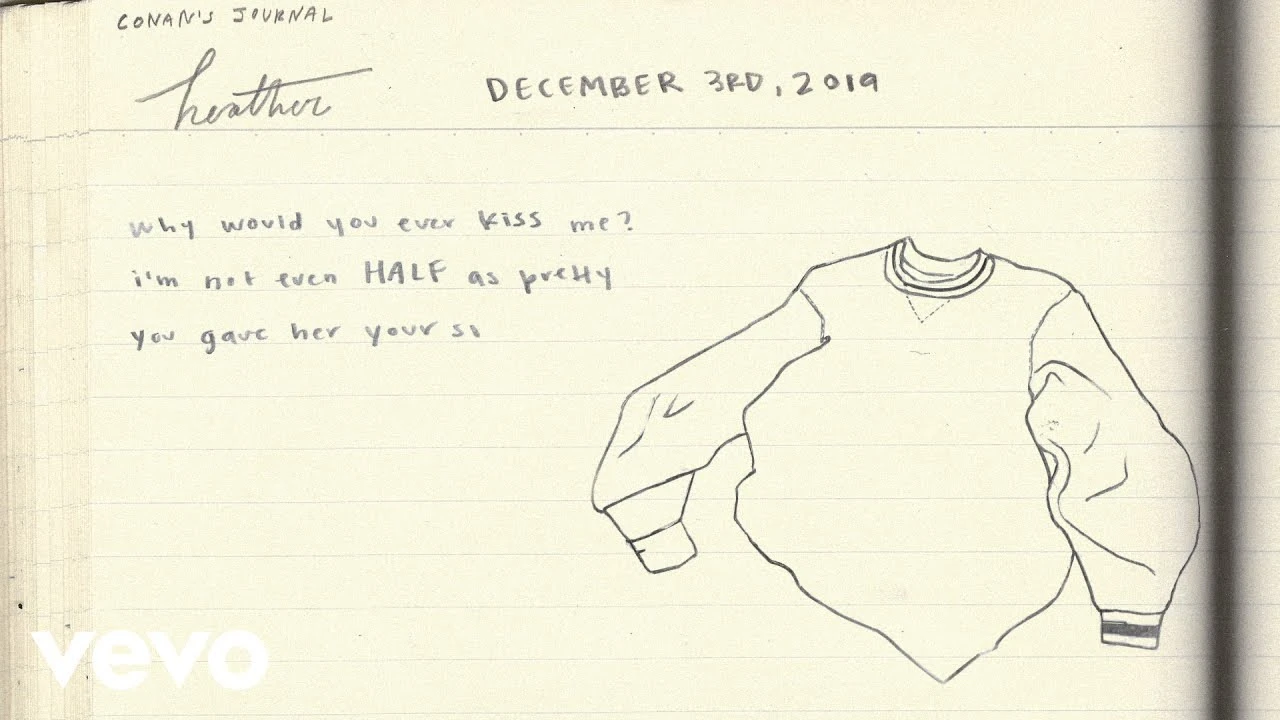 CONAN'S JOURNAL
heather
DECEMBER 3RD, 2019
why would you ever kiss me?
i'm not even HALF as pretty
you gave her your s
vevo